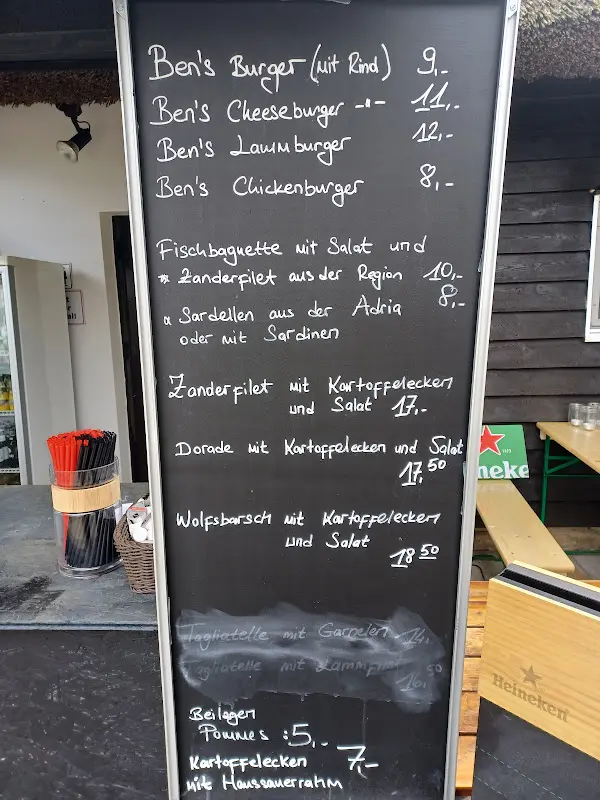 Ben's Burger (mit Rind) 9,-
Ben's Cheeseburger -"- 11,-
Ben's Lammburger 12,-
Ben's Chickenburger 8,-
Fischbaguette mit Salat und
* Zanderfilet aus der Region 10,-
* Sardellen aus der Adria 8,-
oder mit Sardinen
Zanderfilet mit Kartoffelecken
und Salat 17,-
Dorade mit Kartoffelecken und Salat
17,50
Wolfsbarsch mit Kartoffelecken
und Salat
18 50
Tagliatelle mit Garnelen 14,
Tagliatelle mit Lammfilet 16,50
Beilagen
Pommes : 5,-
Kartoffelecken 7,-
mit Haussauerrahm
neke
Heineken